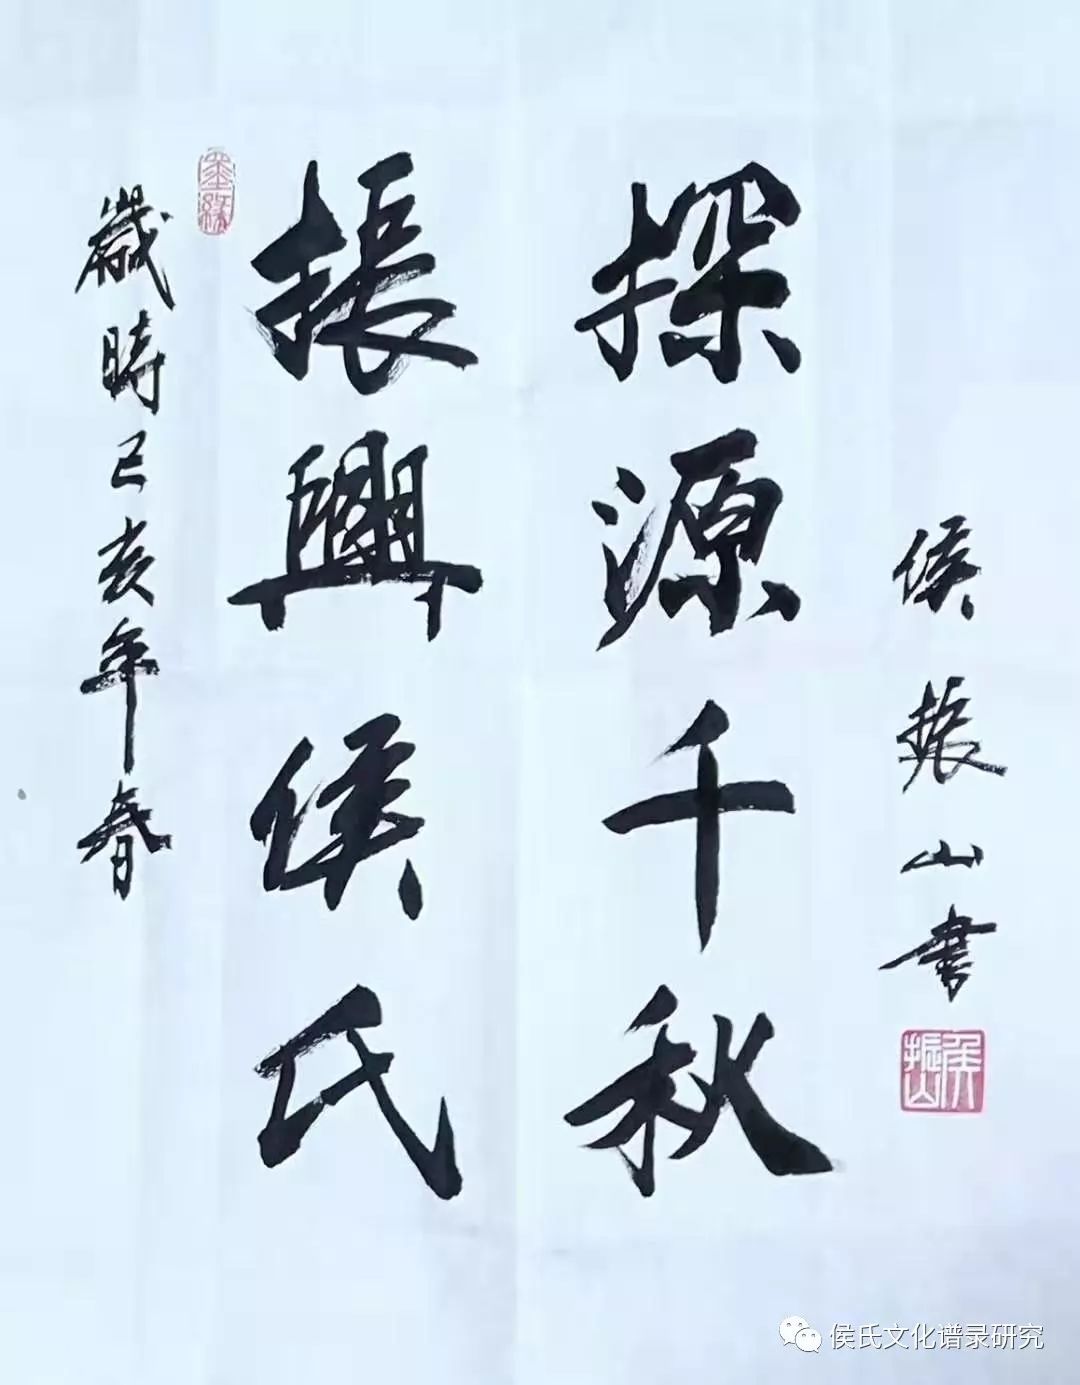 侯振山書
侯振山
探源千秋
振興侯氏
墨緣
歲時己亥年春
侯氏文化谱录研究